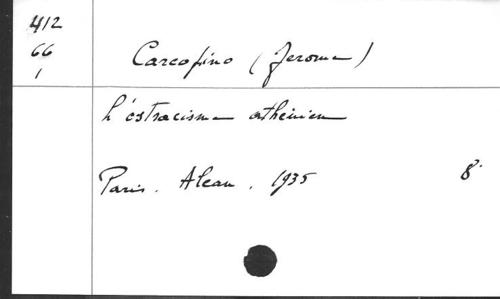 412
66
1
Carcopino (Jerome)
L'ostracisme athénien
Paris. Alcan. 1935 8°